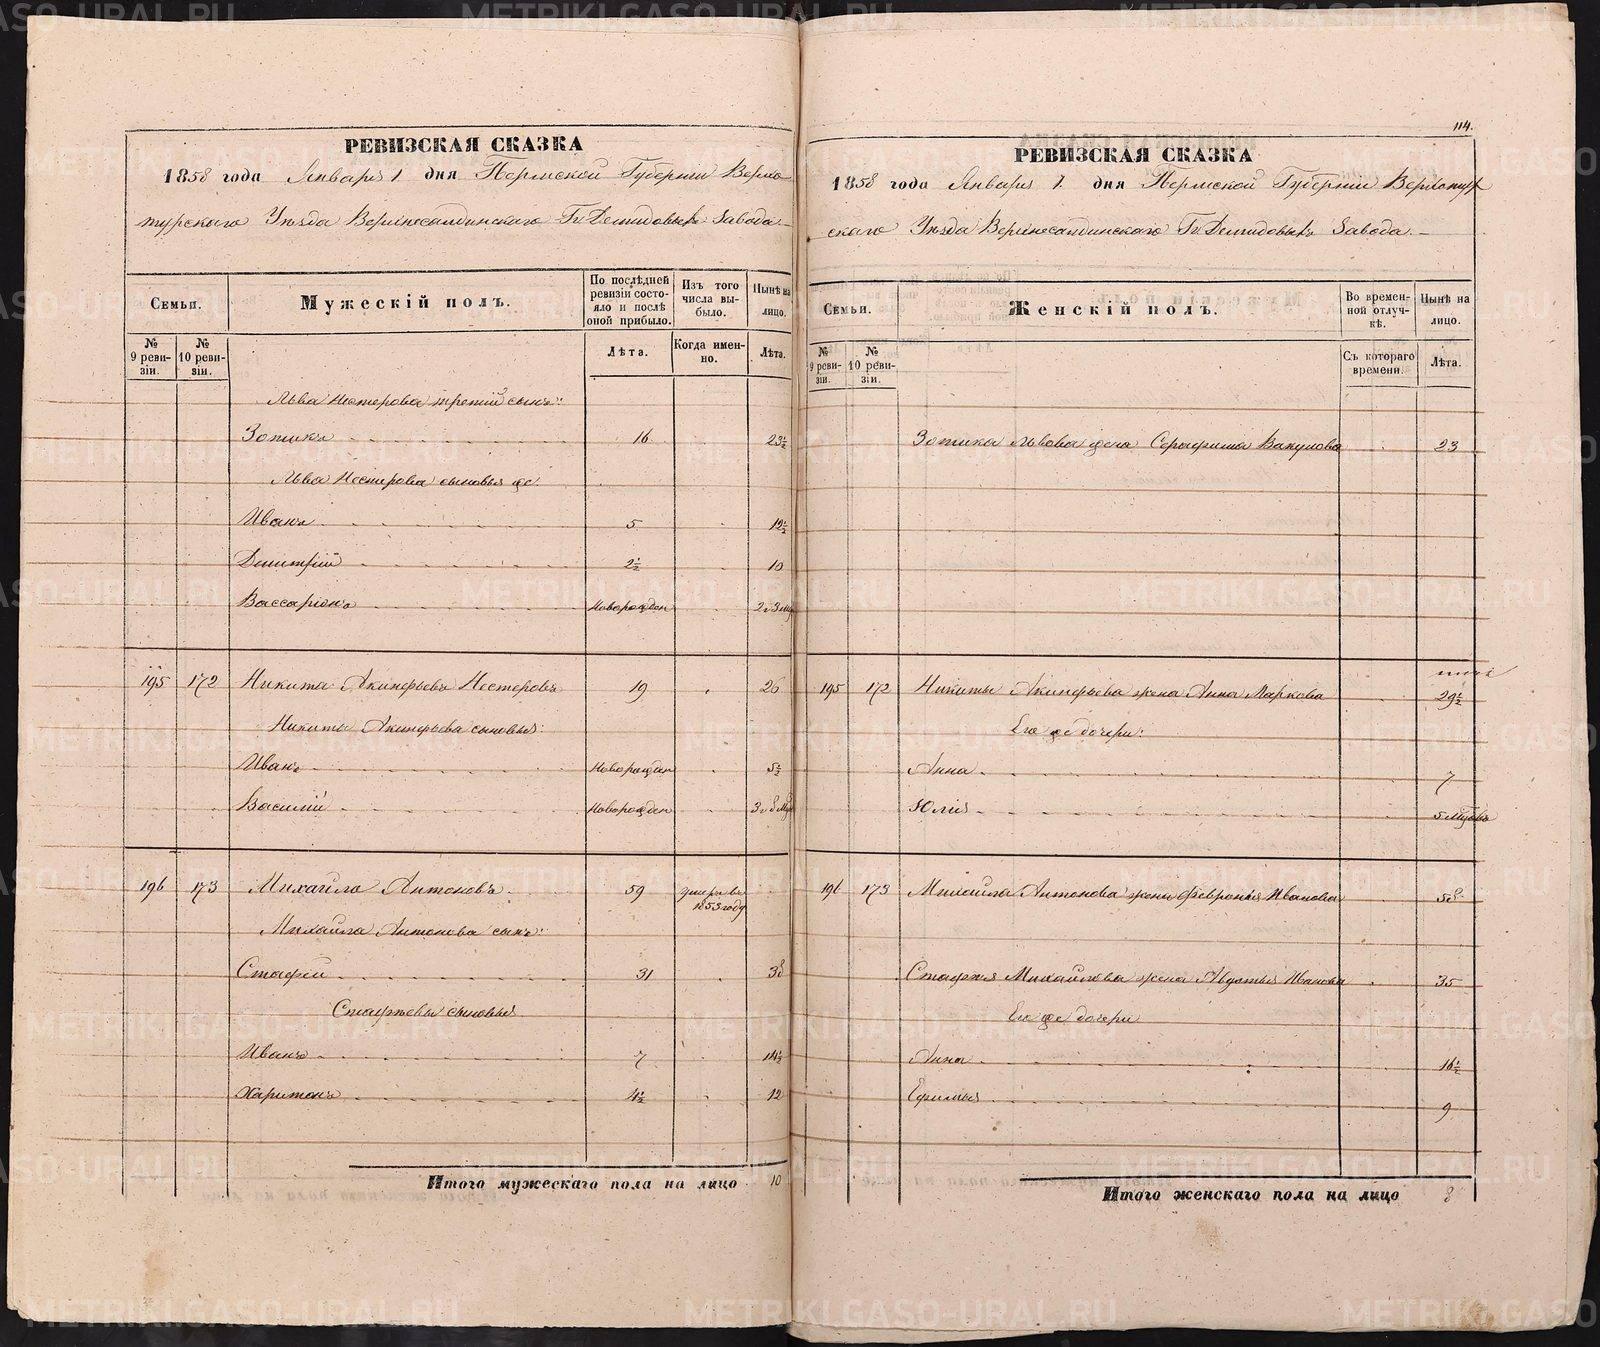 РЕВИЗСКАЯ СКАЗКА
1858 года Января 1 дня Пермской Губерніи Верхо
турскаго Уѣзда Верхнесалдинскаго Гг. Демидовыхъ Завода.
Семьи.
Мужескій полъ.
По послѣдней ревизіи состояло и послѣ оной прибыло.
Изъ того числа выбыло.
Нынѣ на лицо.
№ 9 ревизіи.
№ 10 ревизіи.
Лѣта.
Когда именно.
Лѣта.
Льва Нестерова третій сынъ:
Зотикъ 16 23½
Льва Нестерова сыновья же:
Иванъ 5 12½
Дмитрій 2½ 10
Вассаріонъ новорожден 2 и 3 мѣ
195 172 Никита Акинфьевъ Нестеровъ 19 26
Никиты Акинфьева сыновья:
Иванъ новорожден 5½
Василій новорожден 3 и 8 мѣ
196 173 Михайло Антоновъ 59 умеръ въ 1853 году
Михайла Антонова сынъ:
Стафей 31 38
Стафѣевы сыновья
Иванъ 7 14½
Харитонъ 4½ 12
Итого мужескаго пола на лицо 10
114.
РЕВИЗСКАЯ СКАЗКА
1858 года Января 1 дня Пермской Губерніи Верхотур
скаго Уѣзда Верхнесалдинскаго Гг. Демидовыхъ Завода.
Семьи.
Женскій полъ.
Во временной отлучкѣ.
Нынѣ на лицо.
№ 9 ревизіи.
№ 10 ревизіи.
Съ котораго времени.
Лѣта.
Зотика Львова жена Серафима Вакулова 23
195 172 Никиты Акинфьева жена Анна Маркова 29½
Его же дочери:
Анна 7
Юлія 5 мѣсяцовъ
196 173 Михайла Антонова жена Февронія Иванова 58
Стафея Михайлова жена Авдотья Иванова 35
Его же дочери
Анна 16½
Ефимья 9
Итого женскаго пола на лицо 8
METRIKI.GASO-URAL.RU